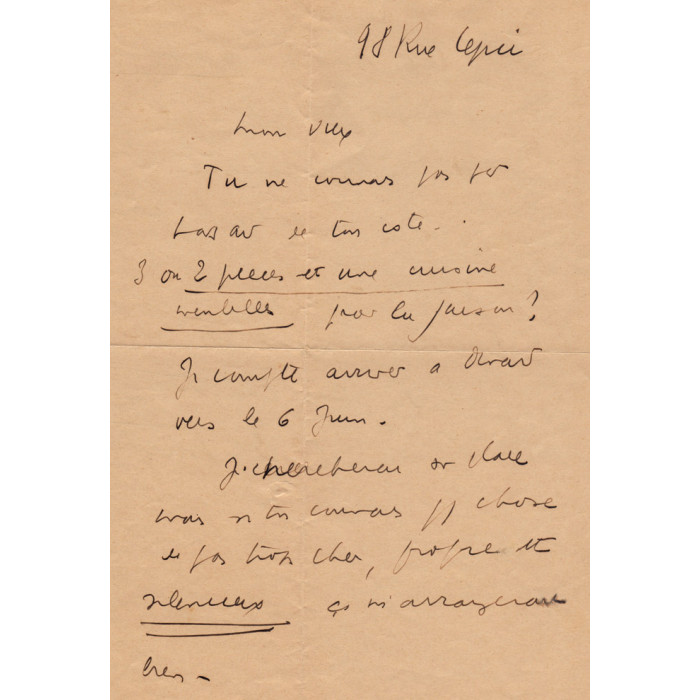 98 Rue Lepic
Mon vieux
Tu ne connais pas par
hasard de ton coté.
3 ou 2 pieces et une cuisine
meublées pour la saison?
Je compte arriver a Dinard
vers le 6 Juin.
Je chercherai sur place
mais si tu connais qq chose
de pas trop cher, propre et
silencieux ça m'arrangerait
bien -